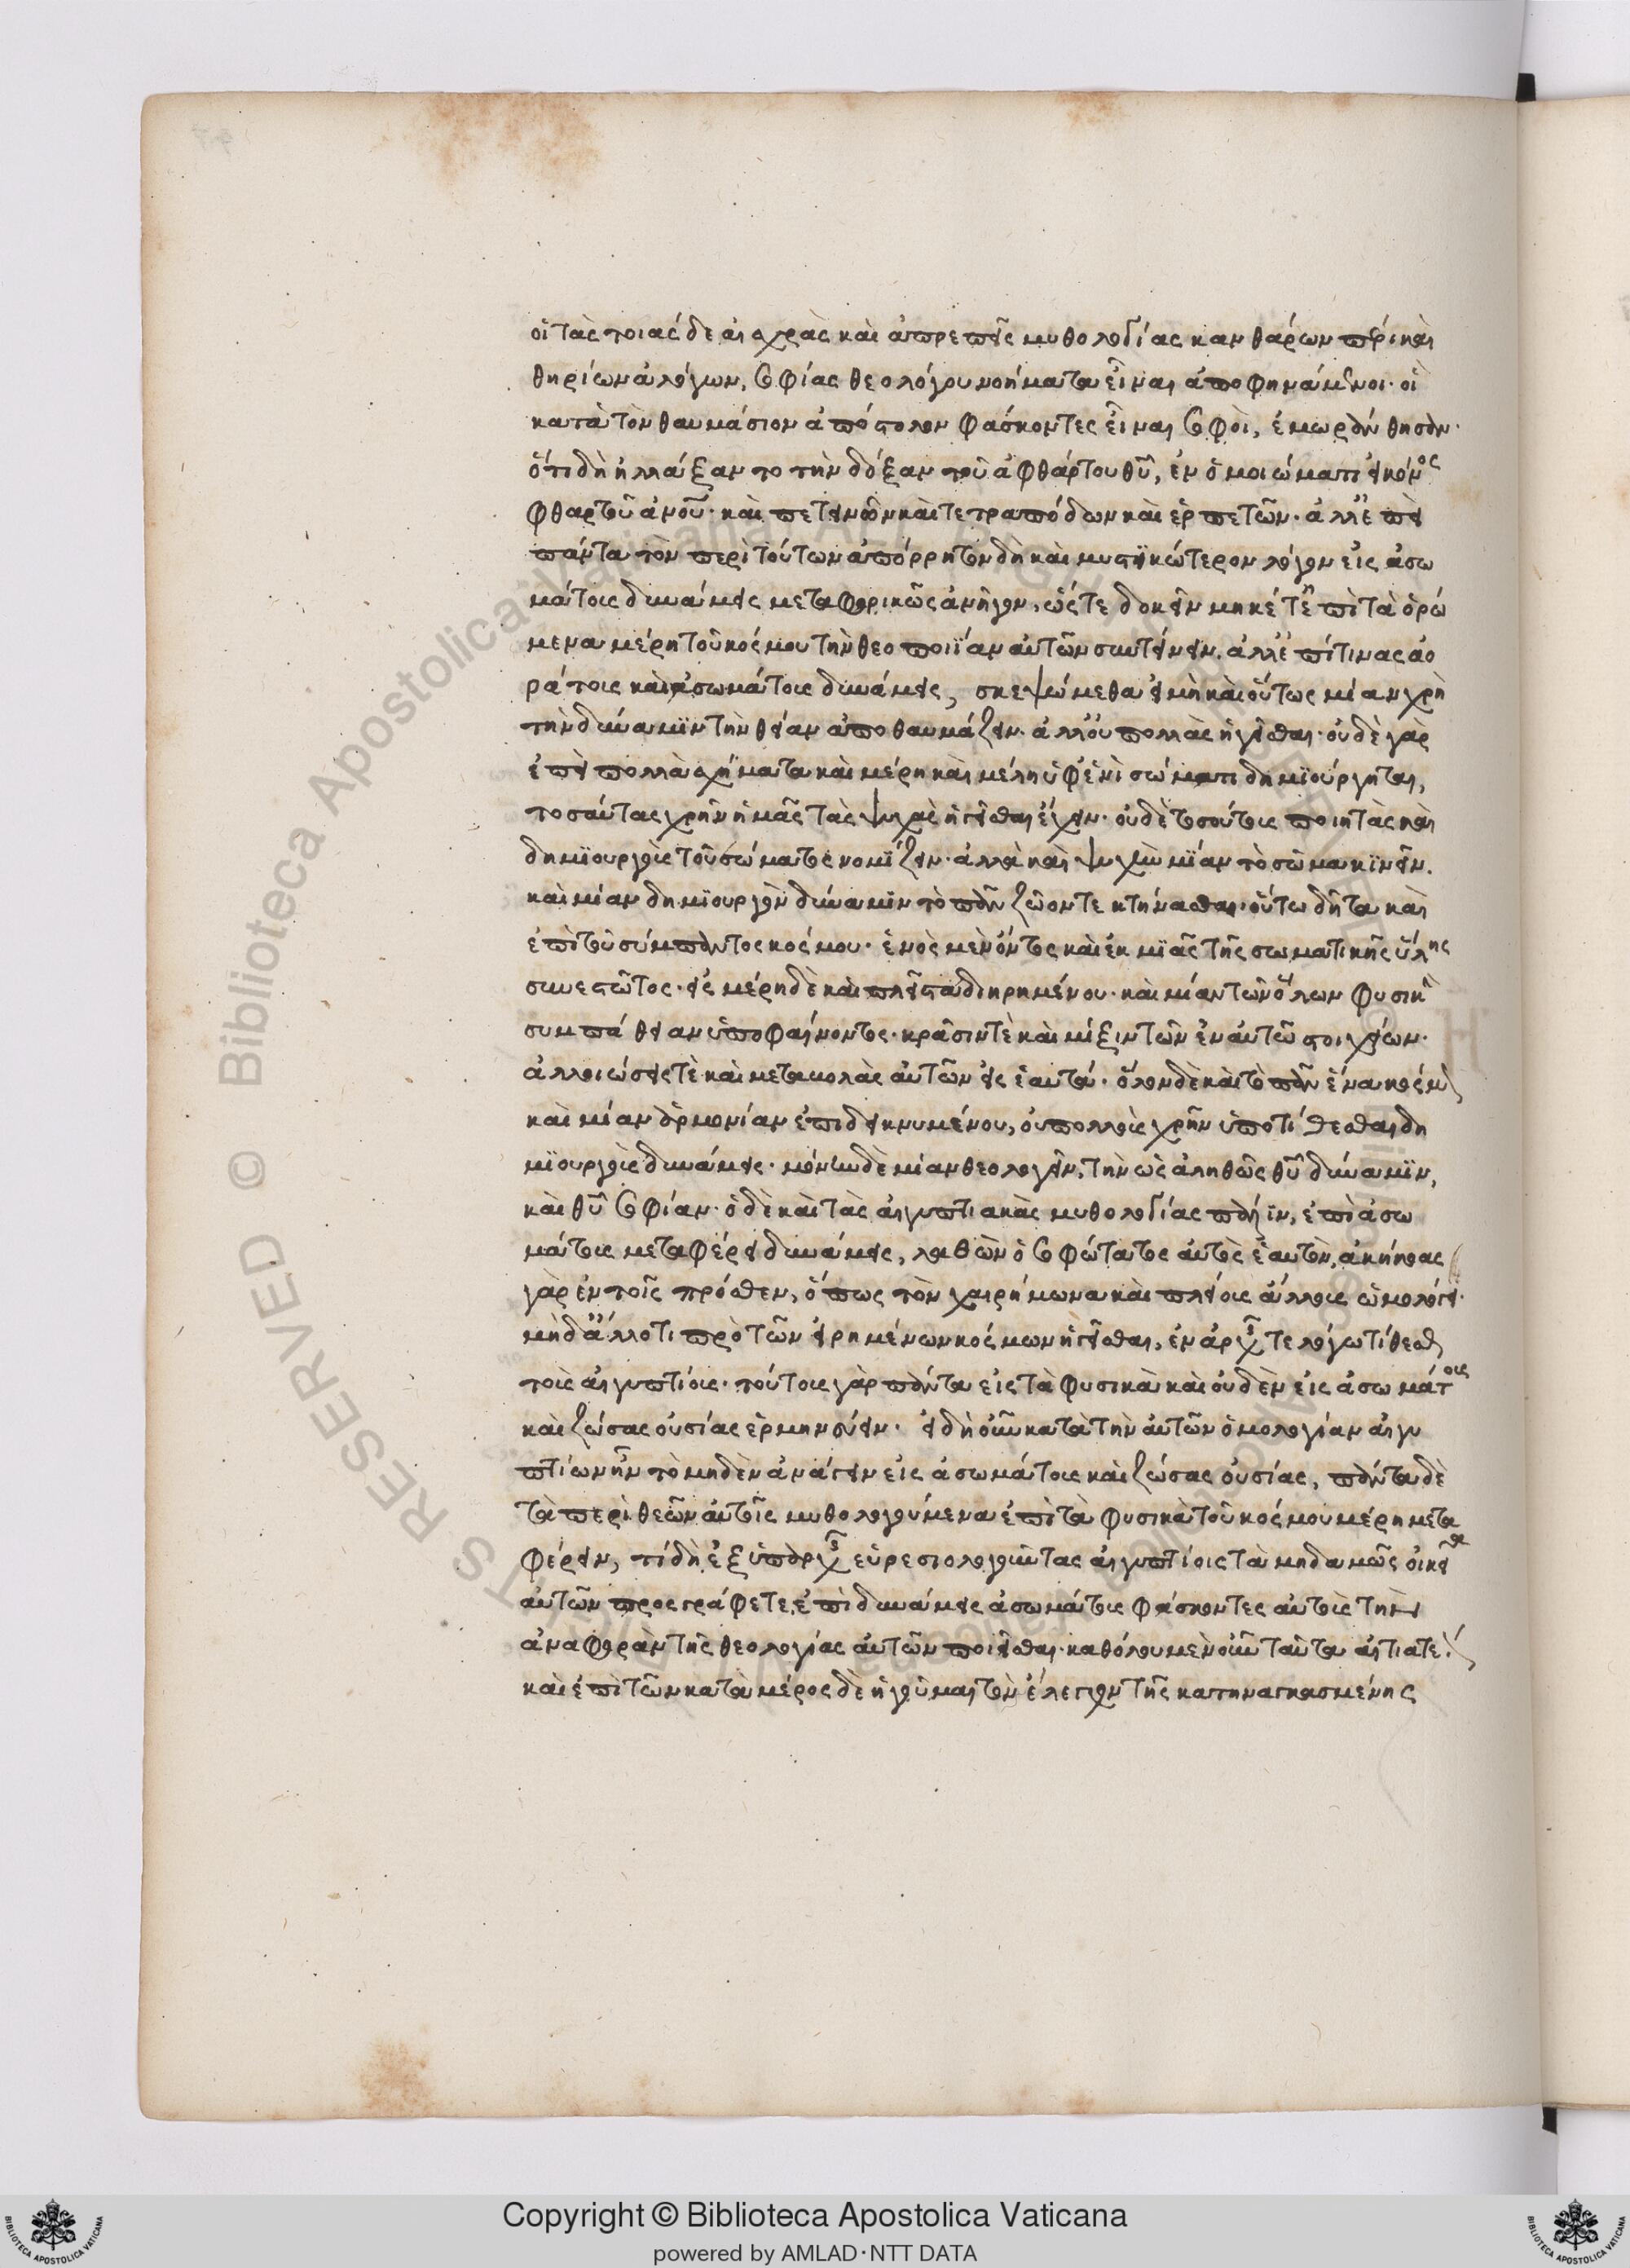 οἱ τὰς τοιάσδε αἰσχρὰς καὶ ἀπρεπεῖς μυθολογίας κανθάρων πέρι καὶ
θηρίων ἀλόγων, σοφίας θεολόγου νοήματα εἶναι ἀποφηνάμενοι· οἳ
κατὰ τὸν θαυμάσιον ἀπόστολον φάσκοντες εἶναι σοφοὶ, ἐμωράνθησαν·
ὅτι δὴ ἠλλάξαντο τὴν δόξαν τοῦ ἀφθάρτου θῦ, ἐν ὁμοιώματι εἰκόνος
φθαρτοῦ ἀνοῦ· καὶ πετεινῶν καὶ τετραπόδων καὶ ἑρπετῶν· ἀλλ' ἐπεὶ
πάντα τὸν περὶ τούτων ἀπόρρητον δὴ καὶ μυστϊκώτερον λόγον εἰς ἀσω
μάτους δυνάμεις μεταφορικῶς ἀνῆγον, ὥστε δοκεῖν μηκέτ' ἐπὶ τὰ ὁρώ
μενα μέρη τοῦ κόσμου τὴν θεοποιΐαν αὐτῶν συντείνειν. ἀλλ' ἐπί τινας ἀο
ράτους καὶ ἀσωμάτους δυνάμεις, σκεψώμεθα εἰ μὴ καὶ οὕτως μίαν χρὴ
τὴν δύναμϊν τὴν θείαν ἀποθαυμάζειν· ἀλλ' οὐ πολλὰς ἡγεῖσθαι· οὐδὲ γὰρ
ἐπεὶ πολλὰ σχήματα καὶ μέρη καὶ μέλη ὑφ' ἑνὶ σώματι δημϊούργηται,
τοσαύτας χρῆν ἡμᾶς τὰς ψυχὰς ἡγεῖσθαι ἔχειν· οὐδὲ τοσούτους ποιητὰς καὶ
δημϊουργοὺς τοῦ σώματος νομίζειν· ἀλλὰ καὶ ψυχὴν μϊαν τὸ σῶμα κϊνεῖν.
καὶ μίαν δημϊουργὸν δύναμϊν τὸ πᾶν ζῶον τεκτήνασθαι· οὕτω δῆτα καὶ
ἐπὶ τοῦ σύμπαντος κόσμου· ἑνὸς μὲν ὄντος καὶ ἐκ μϊᾶς τῆς σωματικῆς ὕλης
συνεστῶτος· εἰς μέρη δὲ καὶ πλεῖστα διῃρημένου· καὶ μίαν τῶν ὅλων φυσικὴν
συμπάθειαν ὑποφαίνοντος· κρᾶσιν τὲ καὶ μίξιν τῶν ἐν αὐτῶ στοιχείων·
ἀλλοιώσεις τὲ καὶ μεταβολὰς αὐτῶν εἰς ἑαυτά· ὅλον δὲ καὶ τὸ πᾶν ἕνα κόσμον
καὶ μίαν ἁρμονίαν ἐπιδεικνυμένου, οὐ πολλοὺς χρῆν ὑποτίθεσθαι δη
μϊουργοὺς δυνάμεις· μόνην δὲ μίαν θεολογεῖν, τὴν ὡς ἀληθῶς θῦ δύναμϊν,
καὶ θῦ σοφίαν· ὁ δὲ καὶ τὰς αἰγυπτιακὰς μυθολογίας πάλιν, ἐπὶ ἀσω
μάτους μεταφέρει δυνάμεις, λαθὼν ὁ σοφώτατος αὐτὸς ἑαυτὸν, ἀκήκοας
γὰρ ἐν τοῖς πρόσθεν, ὅπως τὸν χαιρήμωνα καὶ πλείους ἄλλους ὡμολόγει·
μὴδ' ἄλλο τι πρὸ τῶν εἰρημένων κόσμων ἡγεῖσθαι, ἐν ἀρχῆς τε λόγω τίθεσθαι
τοὺς αἰγυπτίους· τούτους γὰρ πάντα εἰς τὰ φυσικὰ καὶ οὐδὲν εἰς ἀσωμάτους
καὶ ζώσας οὐσίας ἑρμηνεύειν· εἰ δὴ οὖν κατὰ τὴν αὐτῶν ὁμολογίαν αἰγυ
πτίων ἦν τὸ μηδὲν ἀνάγειν εἰς ἀσωμάτους καὶ ζώσας οὐσίας, πάντα δὲ
τὰ περὶ θεῶν αὐτοῖς μυθολογούμενα ἐπὶ τὰ φυσικὰ τοῦ κόσμου μέρη μετα
φέρειν, τί δὴ ἐξ ὑπαρχῆς εὑρεσιλογοῦντας αἰγυπτίοις τὰ μηδαμῶς οἰκεῖα
αὐτῶν προσγράφετε, ἐπὶ δυνάμεις ἀσωμάτους φάσκοντες αὐτοὺς τὴν
ἀναφορὰν τῆς θεολογίας αὐτῶν ποιεῖσθαι· καθόλου μὲν οὖν ταῦτα αἰτιατέ·
καὶ ἐπὶ τῶν κατὰ μέρος δὲ ἡγοῦμαι τὸν ἔλεγχον τῆς κατηναγκασμένης